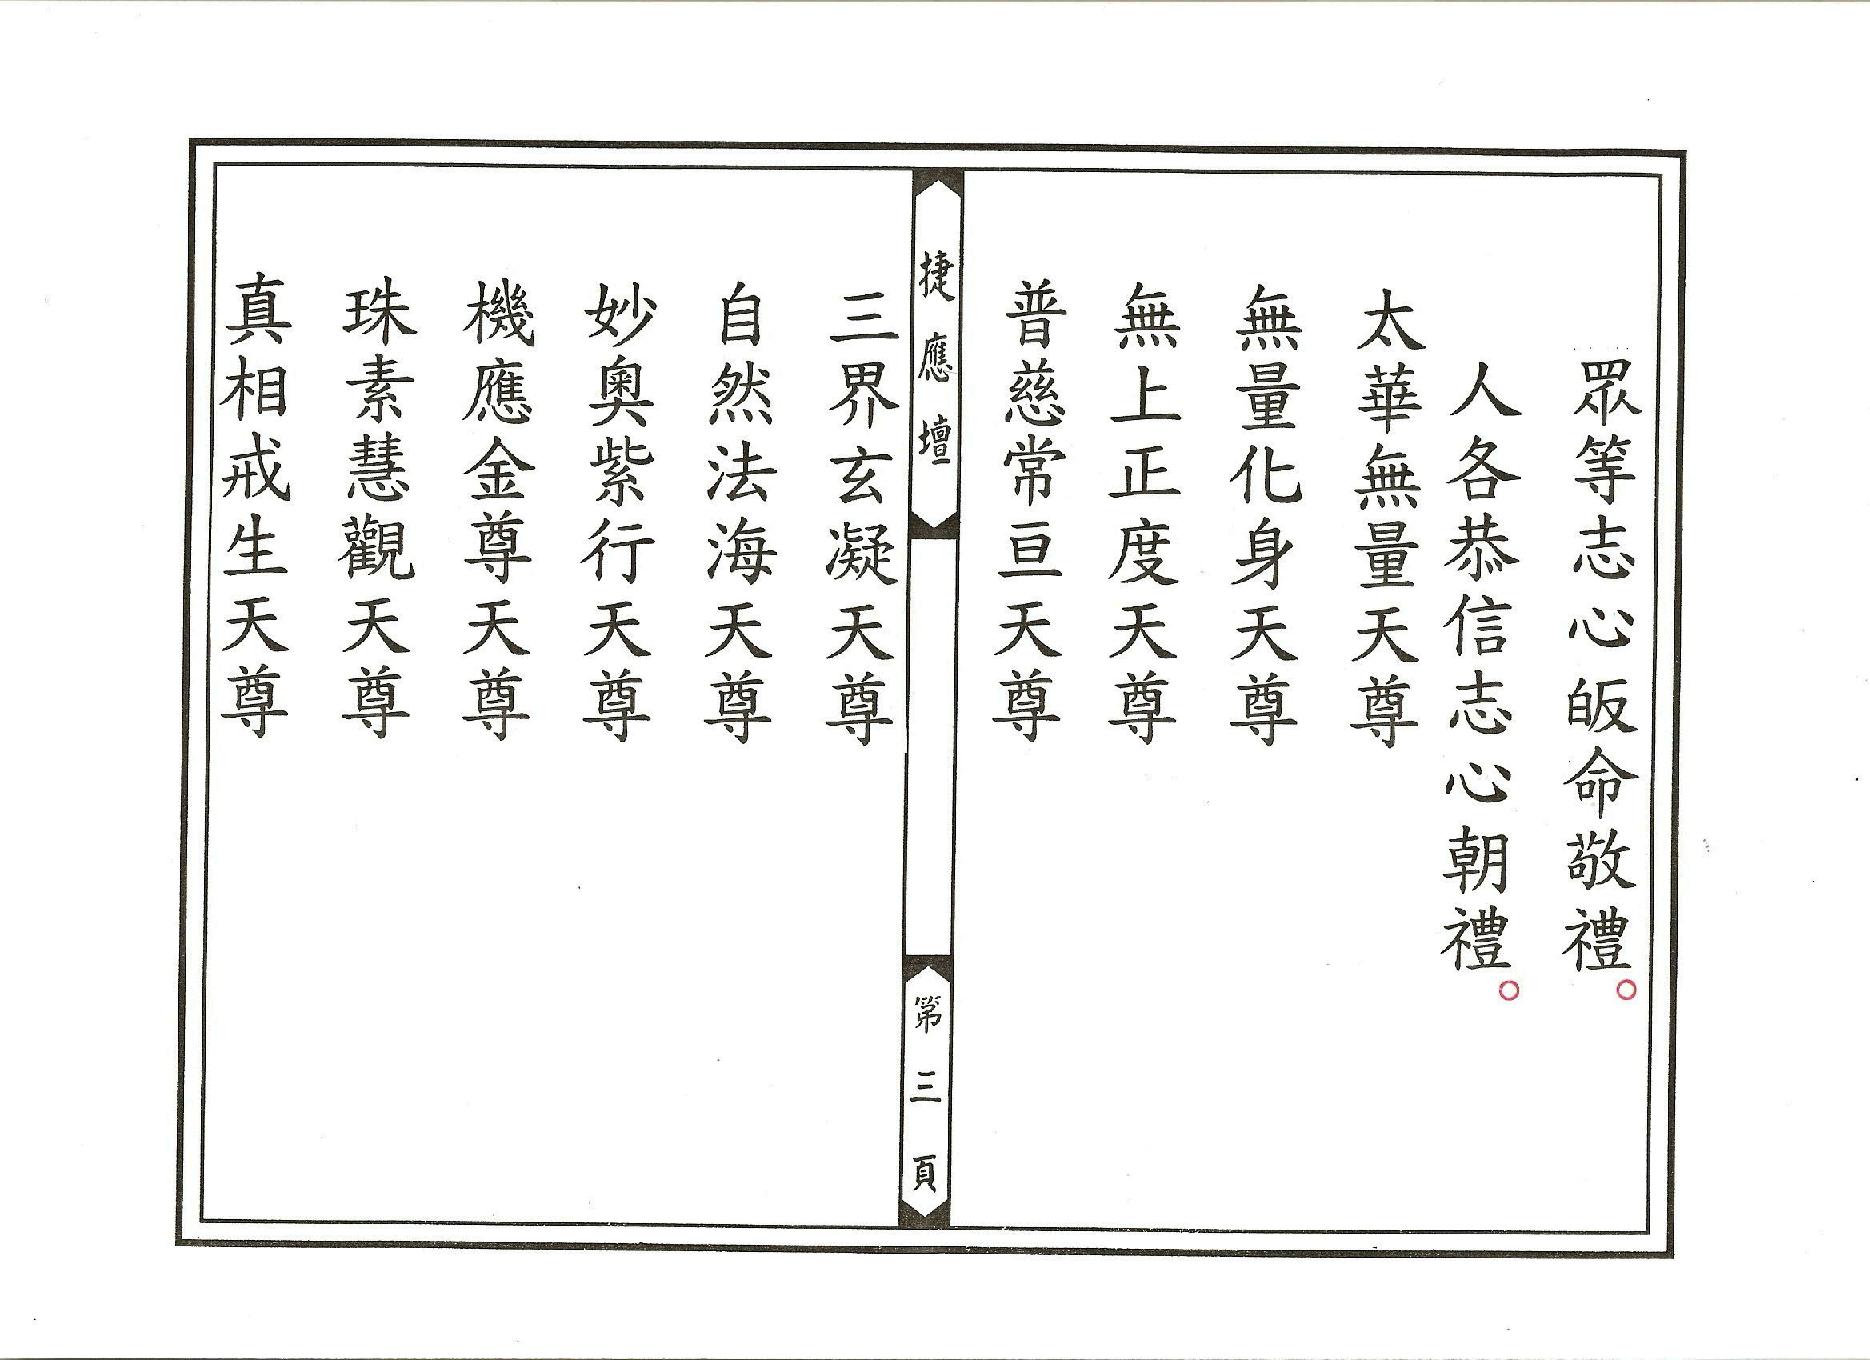 眾等志心皈命敬禮。
人各恭信志心朝禮。
太華無量天尊
無量化身天尊
無上正度天尊
普慈常亘天尊
捷應壇
第三頁
三界玄凝天尊
自然法海天尊
妙奧紫行天尊
機應金尊天尊
珠素慧觀天尊
真相戒生天尊